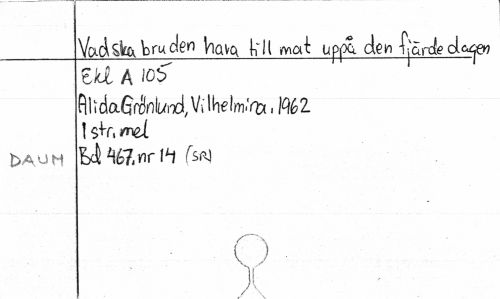 Vadska bruden hava till mat uppå den fjärde dagen
Ekl A 105
Alida Grönlund, Vilhelmina. 1962
1 str. mel
DAUM Bd 467. nr 14 (SR)